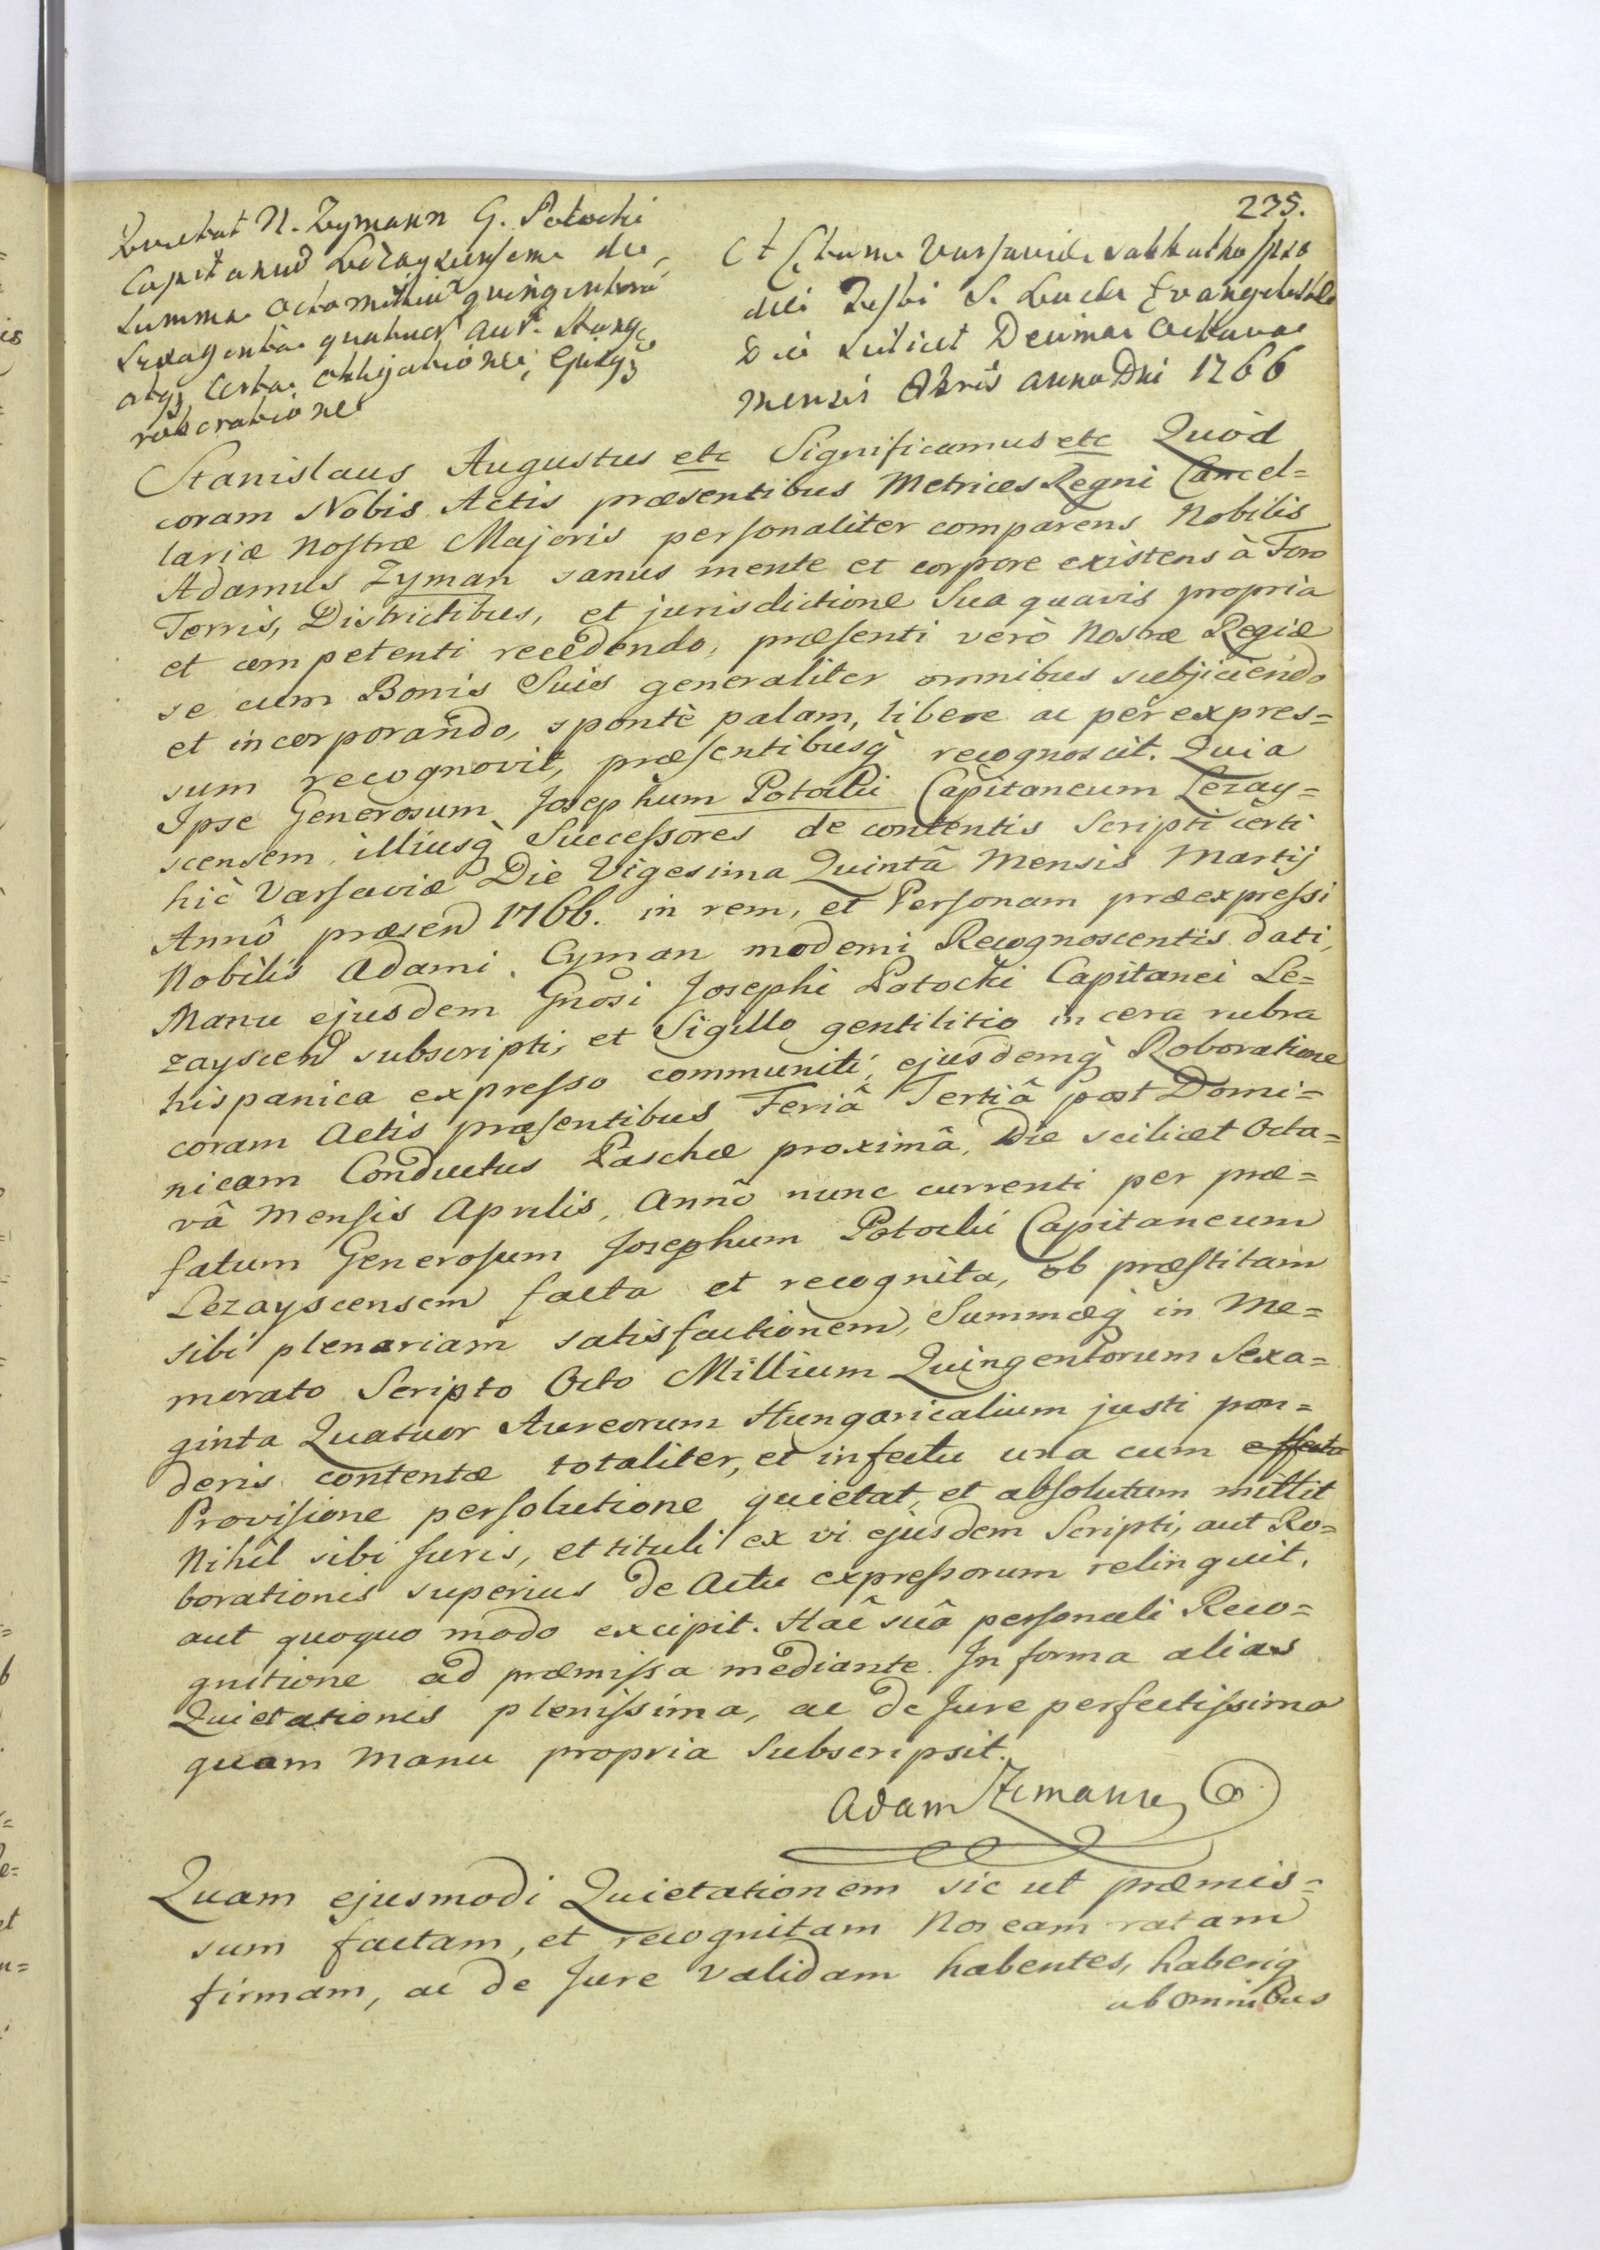 235.
Quietat N. Zyman G. Potocki
Capitaneũ Lezayscensem de
Summa Octo milliũ quingentorũ
Sexaginta quatuor Aur. Hung.
atqз certae obligatione, ejusqз
roboratione
Actum Varsaviae Sabbatho ipso
die Festi S. Lucae Evangelistae
Die scilicet Decima Octava
mensis 8bris anno Dni 1766
Stanislaus Augustus etc Significamus etc Quòd
coram Nobis Actis præsentibus Metrices Regni Cancel=
lariæ Nostræ Majoris personaliter comparens Nobilis
Adamus Zyman sanus mente et corpore existens à Foro
Terris, Districtibus, et jurisdictione Sua quavis propria
et competenti recedendo, præsenti verò Nostræ Regiæ
se cum Bonis Suis generaliter omnibus subjiciendo
et incorporando, spontè palam, libere ac per expres=
sum recognovit, præsentibusq̀ recognoscit. Quia
Ipse Generosum Josephum Potocki Capitaneum Lezay=
scensem illiusq̀ Successores de contentis Scripti certi
hic Varsaviæ Die Vigesima Quintâ Mensis Martij
Annô præsen 1766. in rem, et Personam præexpressi
Nobilis Adami Cyman moderni Recognoscentis dati,
Manu ejusdem Gnosi Josephi Potocki Capitanei Le=
zayscen subscripti, et Sigillo gentilitio in cera rubra
hispanica expresso communiti, ejusdemq̀ Roboratione
coram Actis præsentibus Feriâ Tertiâ post Domi=
nicam Conductus Paschæ proximâ, Die scilicet Octa=
vâ Mensis Aprilis, Annô nunc currenti per præ=
fatum Generosum Josephum Potocki Capitaneum
Lezayscensem facta et recognita, ob præstitam
sibi plenariam satisfactionem, Summæq̀ in Me=
morato Scripto Octo Millium Quingentorum Sexa=
ginta Quatuor Aureorum Hungaricalium justi pon=
deris contentæ totaliter, et in fectu una cum effecta
Provisione persolutione quietat, et absolutum mittit
Nihil sibi Juris, et tituli ex vi ejusdem Scripti, aut Ro=
borationis superius de Actu expressorum relinquit,
aut quoquo modo excipit. Hac suâ personali Reco=
gnitione ad præmissa mediante. In forma alias
Quietationis plenissima, ac de Jure perfectissima
quam Manu propria Subscripsit.
Adam Zimann
Quam ejusmodi Quietationem sic ut præmis=
sum factam, et recognitam Nos eam ratam
firmam, ac de Jure validam habentes, haberiq̀
ab omnibus